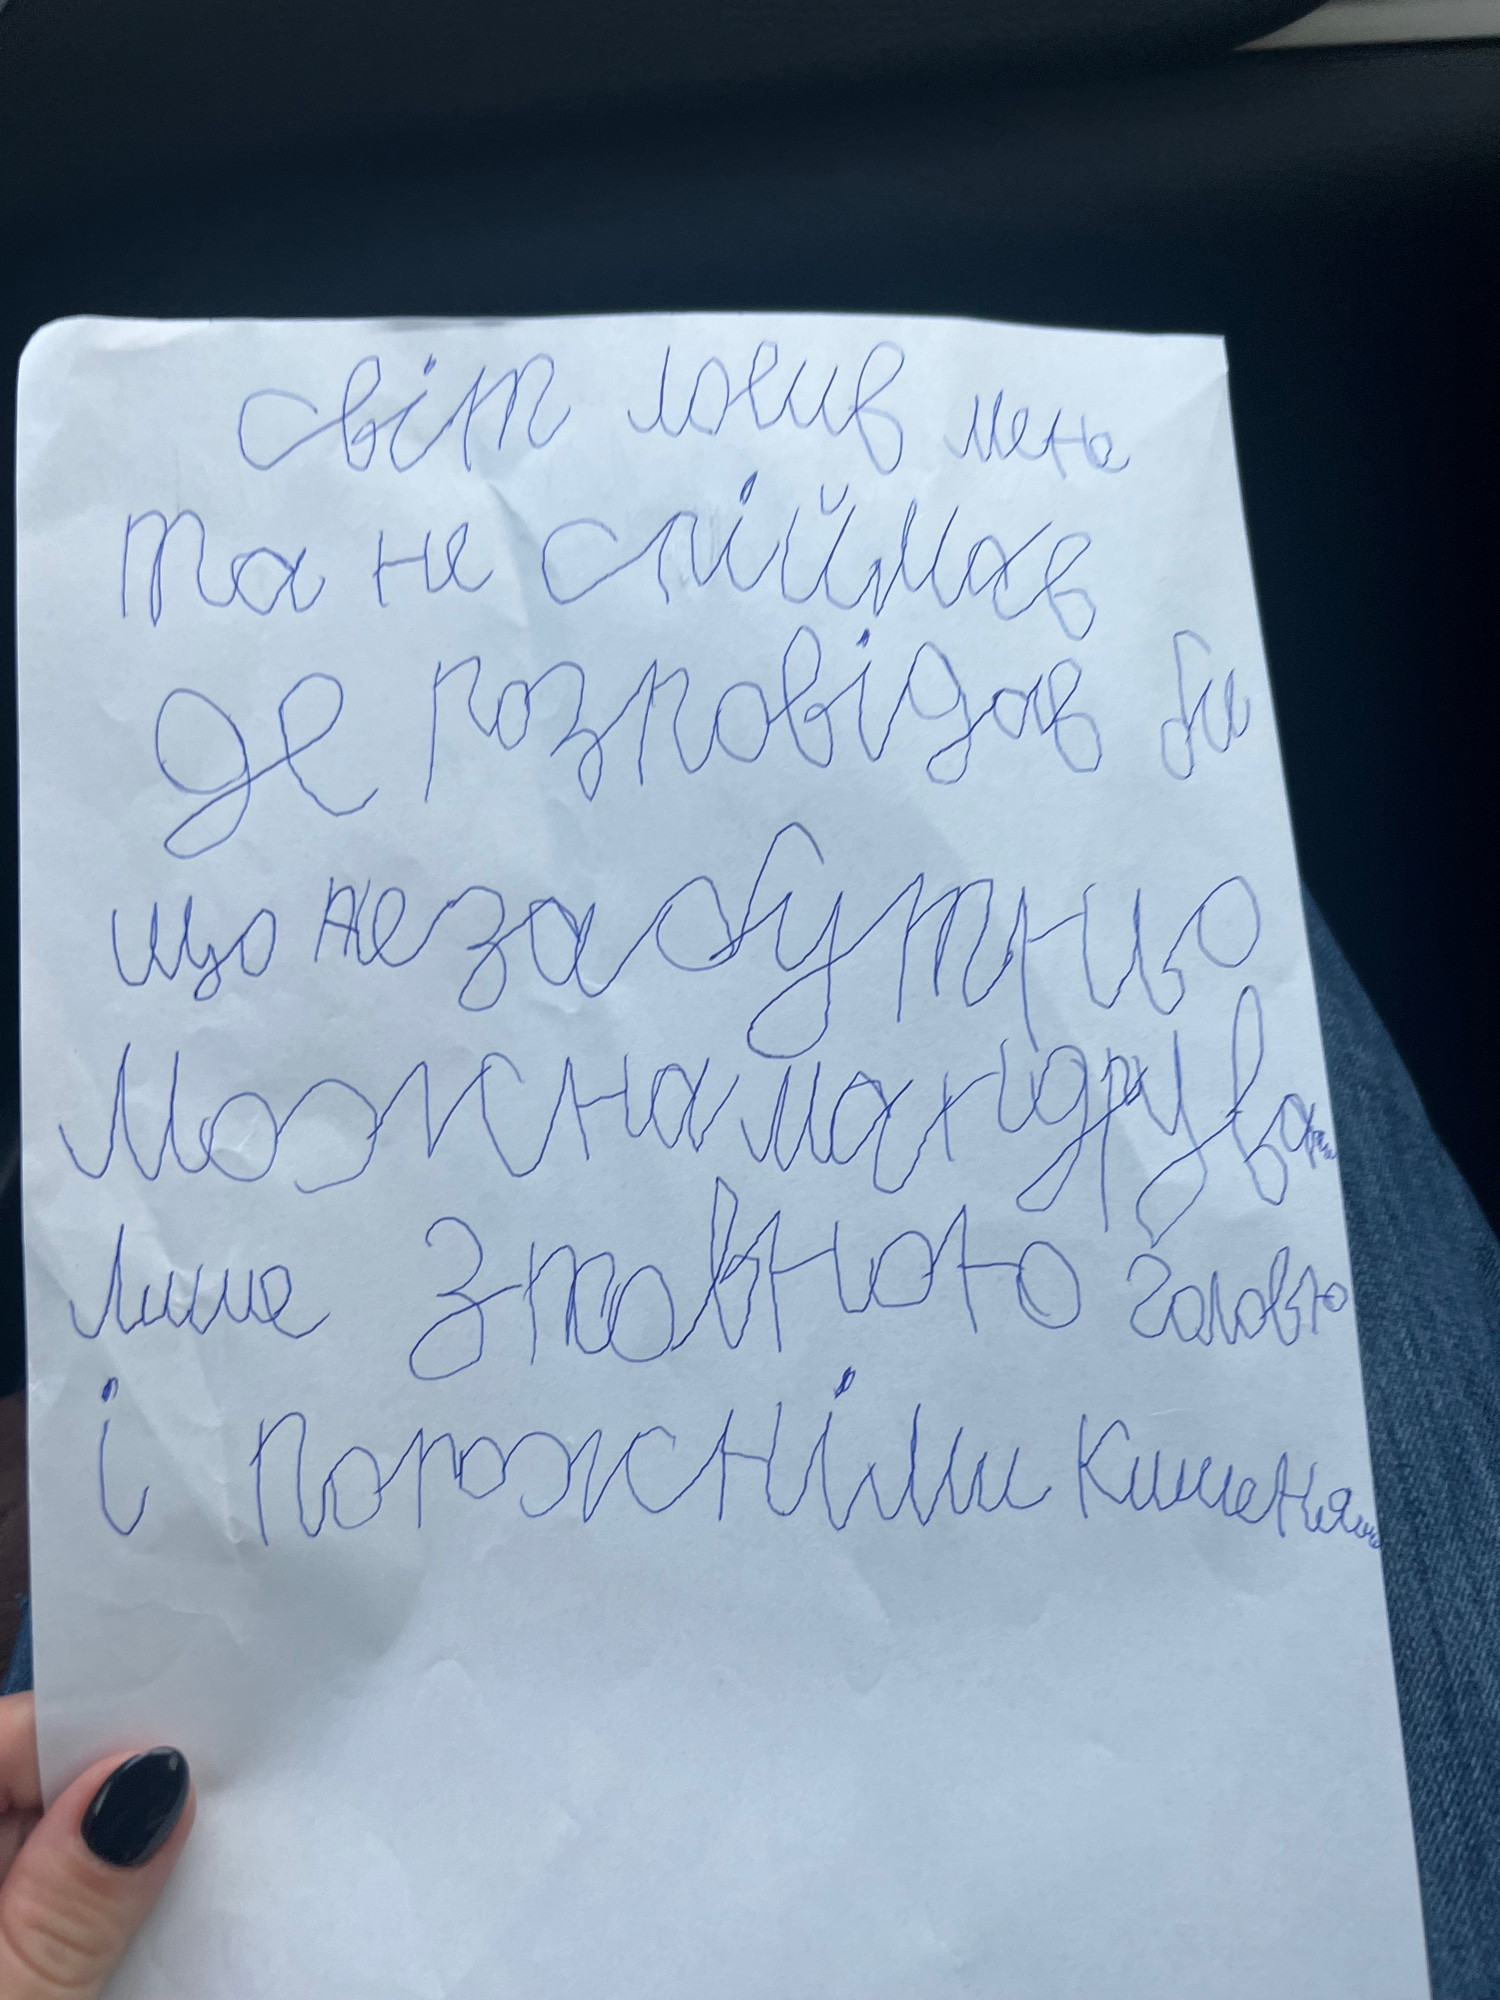 світ ловив мене
та не спіймав
де розповідав би
що незабутньо
можна мандрувати
лише з повною головою
і порожніми кишенями